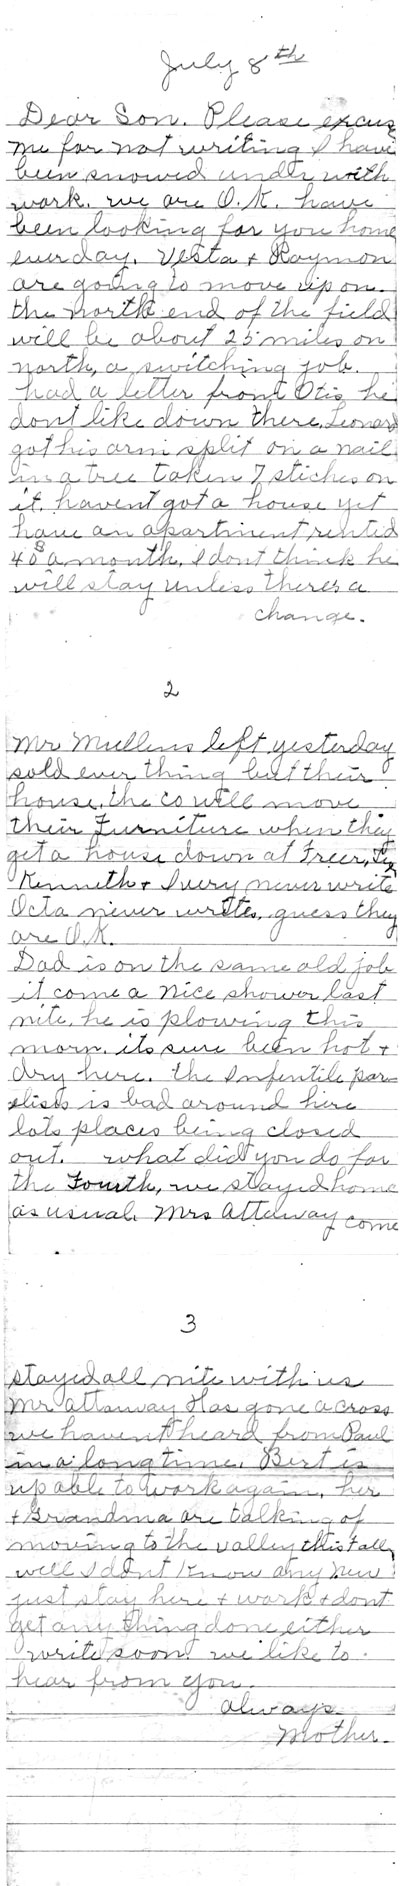 July 8th
Dear Son. Please excuse
me for not writing I have
been snowed under with
work. we are O.K. have
been looking for you home
ever day. Vesta + Raymon
are going to move up on
the north end of the field
will be about 25 miles on
north, a switching job.
had a letter from Otis he
dont like down there, Leonard
got his arm split on a nail
in a tree taken 7 stiches on
it. havent got a house yet
have an apartment rented
40$ a month, I dont think he
will stay unless theres a
change.
2
Mr Mullens left yesterday
sold ever thing but their
house, the co will move
their Furniture when they
get a house down at Freer, Tex
Kenneth + Ivery never write
Octa never writes, guess they
are O.K.
Dad is on the same old job
it come a nice shower last
nite, he is plowing this
morn. its sure been hot +
dry here. the Infentile par-
elisis is bad around here
lots places being closed
out. what did you do for
the Fourth, we stayed home
as usual. Mrs Attaway come
3
stayed all nite with us
Mr Attaway Has gone across
we havent heard from Paul
in a long time. Bert is
up able to work again, her
+ Grandma are talking of
moving to the valley this Fall,
well I dont Know any new
just stay here + work + dont
get any thing done either
write soon. we like to
hear from you.
always.
Mother.